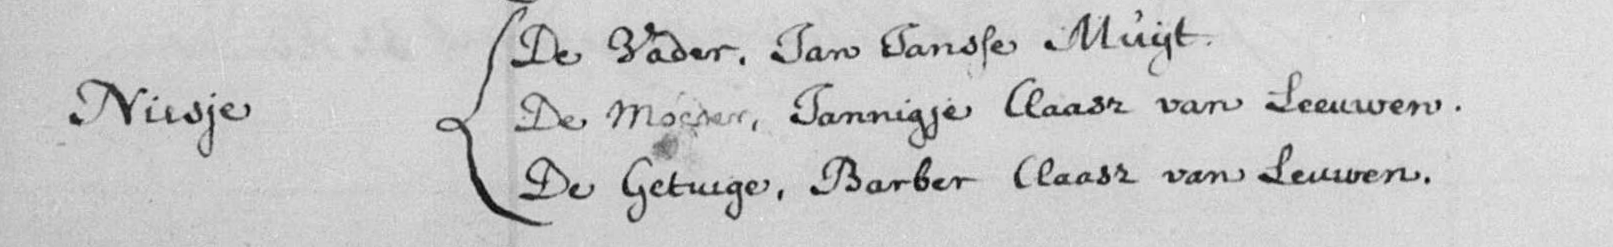 Niesje
De Vader, Jan Jansse Muijt.
De Moeder, Jannigje Claasz van Leeuwen.
De Getuige, Barber Claasz van Leuwen.